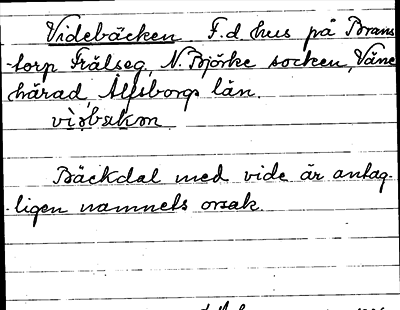 Videbäcken F.d. hus på Brans
torp Frälseg, N. Björke socken, Väne
härad, Älfsborgs län.

Bäckdal med vide är antag-
ligen namnets orsak.